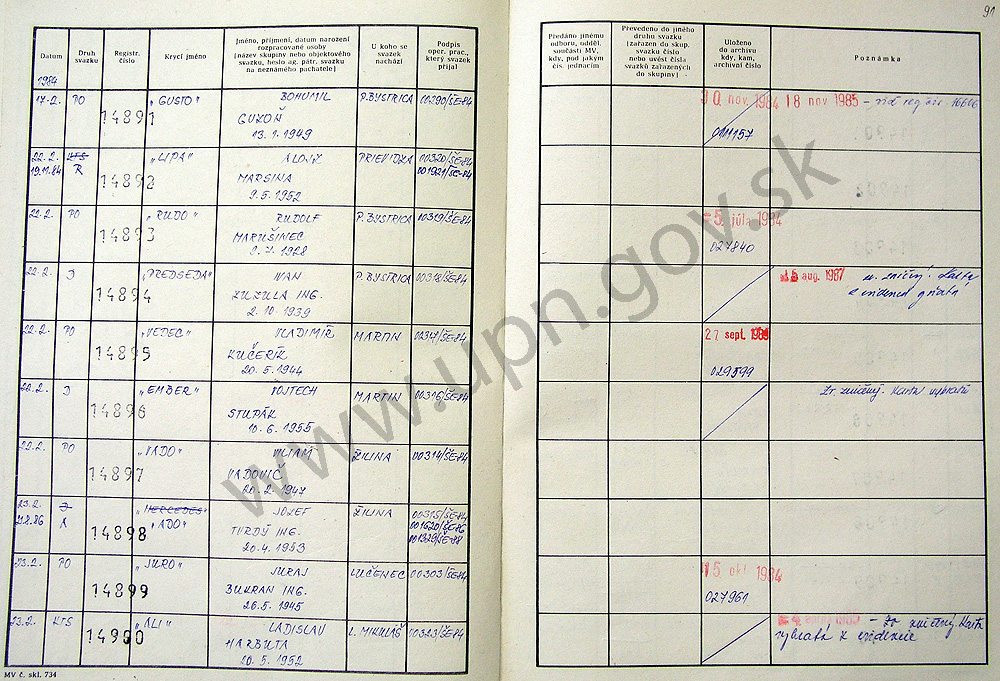 91
Datum
Druh svazku
Registr. číslo
Krycí jméno
Jméno, příjmení, datum narození
rozpracované osoby
(název skupiny nebo objektového
svazku, heslo ag. pátr. svazku
na neznámého pachatele)
U koho se
svazek
nachází
Podpis
oper. prac.,
který svazek
přijal
Předáno jinému
odboru, odděl.
součásti MV,
kdy, pod jakým
čís. jednacím
Převedeno do jiného
druhu svazku
(zařazen do skup.
svazku číslo
nebo uvést čísla
svazků zařazených
do skupiny)
Uloženo
do archivu
kdy, kam,
archivní číslo
Poznámka
1984
17.2. PO 14891 „GUSTO" BOHUMIL P. BYSTRICA 00290/ŠE-84
GUKOŇ
13.1.1949
30 nov. 1984 18 nov 1985 – viď reg. čís. 16606
22.2. KTS 14892 „LIPA" ALOJZ PRIEVIDZA 00320/ŠE-84
19.11.84 R MARSINA 001921/ŠE-84
9.5.1952
22.2. PO 14893 „RUDO" RUDOLF P. BYSTRICA 00319/ŠE-84
MARUŠINEC
2.7.1928
5. júla 1984
027840
22.2. D 14894 „PREDSEDA" IVAN P. BYSTRICA 00318/ŠE-84
ZUZULA ING.
2.10.1939
15 aug. 1987
22.2. PO 14895 „VEDEC" VLADIMÍR MARTIN 00317/ŠE-84
KUČERÍK
20.5.1944
27 sept.
029599
22.2. D 14896 „EMBER" VOJTECH MARTIN 00316/ŠE-84
STUPÁK
10.6.1955
Zv. zničený. Karta vybratá
22.2. PO 14897 „VADO" VILIAM ŽILINA 00314/ŠE-84
VADOVIČ
20.2.1947
23.2. D 14898 „MERCEDES" JOZEF ŽILINA 00315/ŠE-84
A „ADO" TVRDÝ ING. 001620/ŠE-86
20.4.1953 001329/ŠE-88
23.2. PO 14899 „JURO" JURAJ LUČENEC 00303/ŠE-84
BUKRAN ING.
26.5.1945
15 okt 1984
027961
23.2. KTS 14900 „ALI" LADISLAV L. MIKULÁŠ 00323/ŠE-84
HARBUTA
20.5.1952
– zv zničený. Karta
vybratá z evidencie
MV č. skl. 734
www.upn.gov.sk